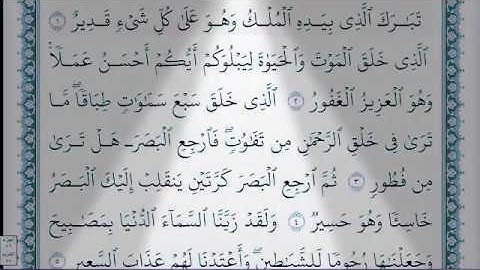 تَبَٰرَكَ ٱلَّذِى بِيَدِهِ ٱلْمُلْكُ وَهُوَ عَلَىٰ كُلِّ شَىْءٍ قَدِيرٌ ١
ٱلَّذِى خَلَقَ ٱلْمَوْتَ وَٱلْحَيَوٰةَ لِيَبْلُوَكُمْ أَيُّكُمْ أَحْسَنُ عَمَلًا
وَهُوَ ٱلْعَزِيزُ ٱلْغَفُورُ ٢ ٱلَّذِى خَلَقَ سَبْعَ سَمَٰوَٰتٍ طِبَاقًا مَّا
تَرَىٰ فِى خَلْقِ ٱلرَّحْمَٰنِ مِن تَفَٰوُتٍ فَٱرْجِعِ ٱلْبَصَرَ هَلْ تَرَىٰ
مِن فُطُورٍ ٣ ثُمَّ ٱرْجِعِ ٱلْبَصَرَ كَرَّتَيْنِ يَنقَلِبْ إِلَيْكَ ٱلْبَصَرُ
خَاسِئًا وَهُوَ حَسِيرٌ ٤ وَلَقَدْ زَيَّنَّا ٱلسَّمَآءَ ٱلدُّنْيَا بِمَصَٰبِيحَ
وَجَعَلْنَٰهَا رُجُومًا لِّلشَّيَٰطِينِ وَأَعْتَدْنَا لَهُمْ عَذَابَ ٱلسَّعِيرِ ٥